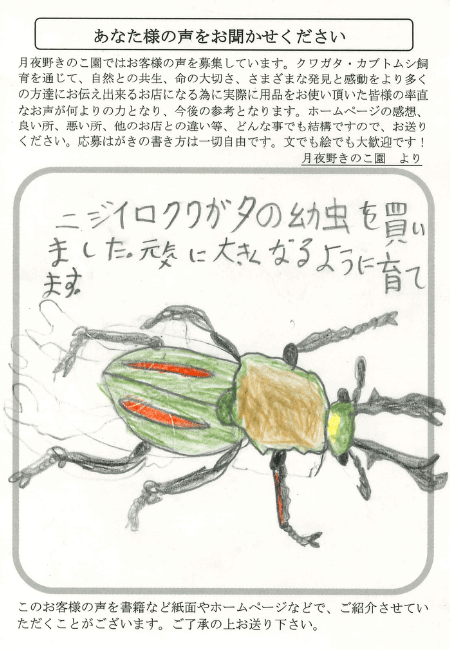 あなた様の声をお聞かせください
月夜野きのこ園ではお客様の声を募集しています。クワガタ・カブトムシ飼
育を通じて、自然との共生、命の大切さ、さまざまな発見と感動をより多く
の方達にお伝え出来るお店になる為に実際に用品をお使い頂いた皆様の率直
なお声が何よりの力となり、今後の参考となります。ホームページの感想、
良い所、悪い所、他のお店との違い等、どんな事でも結構ですので、お送り
ください。応募はがきの書き方は一切自由です。文でも絵でも大歓迎です！
月夜野きのこ園　より
ニジイロクワガタの幼虫を買い
ました。元気に大きくなるように育て
ます。
このお客様の声を書籍など紙面やホームページなどで、ご紹介させてい
ただくことがございます。ご了承の上お送り下さい。